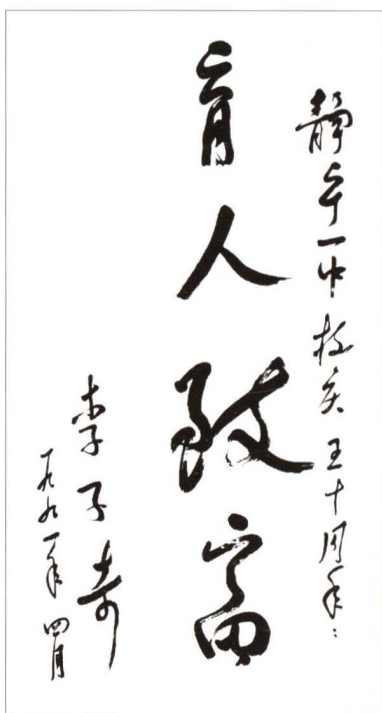 静宁一中校庆五十周年
育人致富
李子奇
一九九一年四月